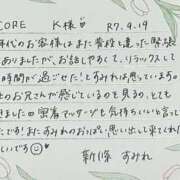 CORE K様♥ R7.9.19
年代のお客様はまた普段と違った緊張
ありましたが、お話しやすく、リラックスして
時間が過ごせたとすみれは思っています。
のお兄さんが感じているのを見ると、とても
きました 密着マッサージも気持ちいいと言って
たです! またすみれのおっぱい思い出し来てくれた
しいです☺
新條 すみれ